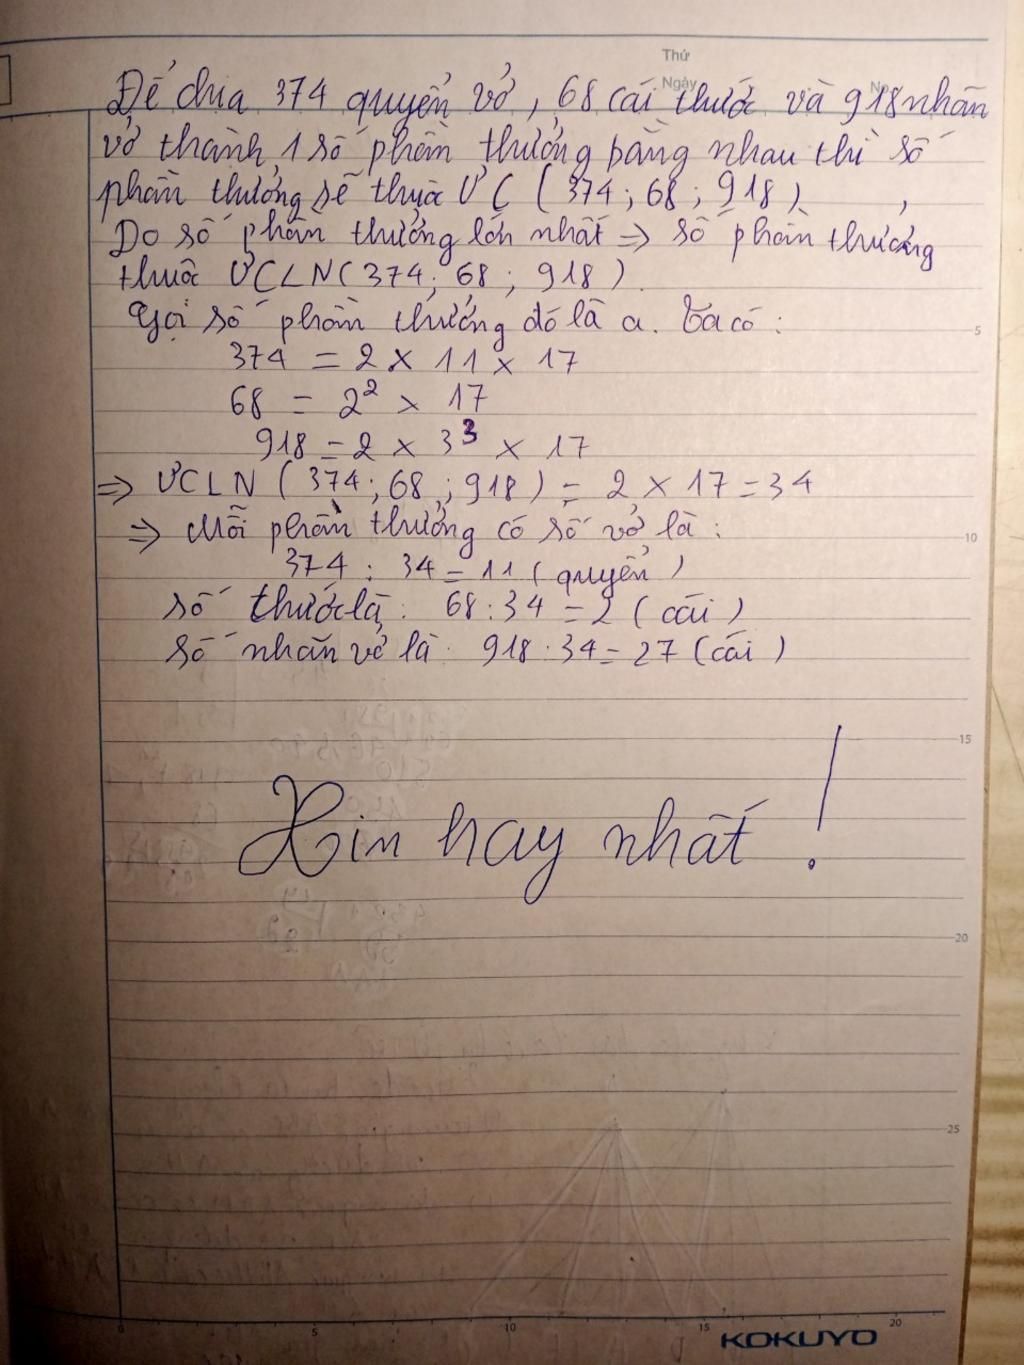 Thứ
Ngày
Để đưa 374 quyển vở, 68 cái thước và 918 nhãn
vở thành 1 số phần thưởng bằng nhau thì số
phần thưởng sẽ thuộc ƯC (374; 68; 918)
Do số phần thưởng lớn nhất => số phần thưởng
thuộc ƯCLN(374; 68; 918)
Gọi số phần thưởng đó là a. Ta có:
5
374 = 2 x 11 x 17
68 = 2² x 17
918 = 2 x 3³ x 17
=> ƯCLN (374; 68; 918) = 2 x 17 = 34
=> Mỗi phần thưởng có số vở là:
10
374 : 34 = 11 (quyển)
số thước là: 68 : 34 = 2 (cái)
số nhãn vở là: 918 : 34 = 27 (cái)
15
Xin hay nhất !
20
25
0 5 10 15 20
KOKUYO